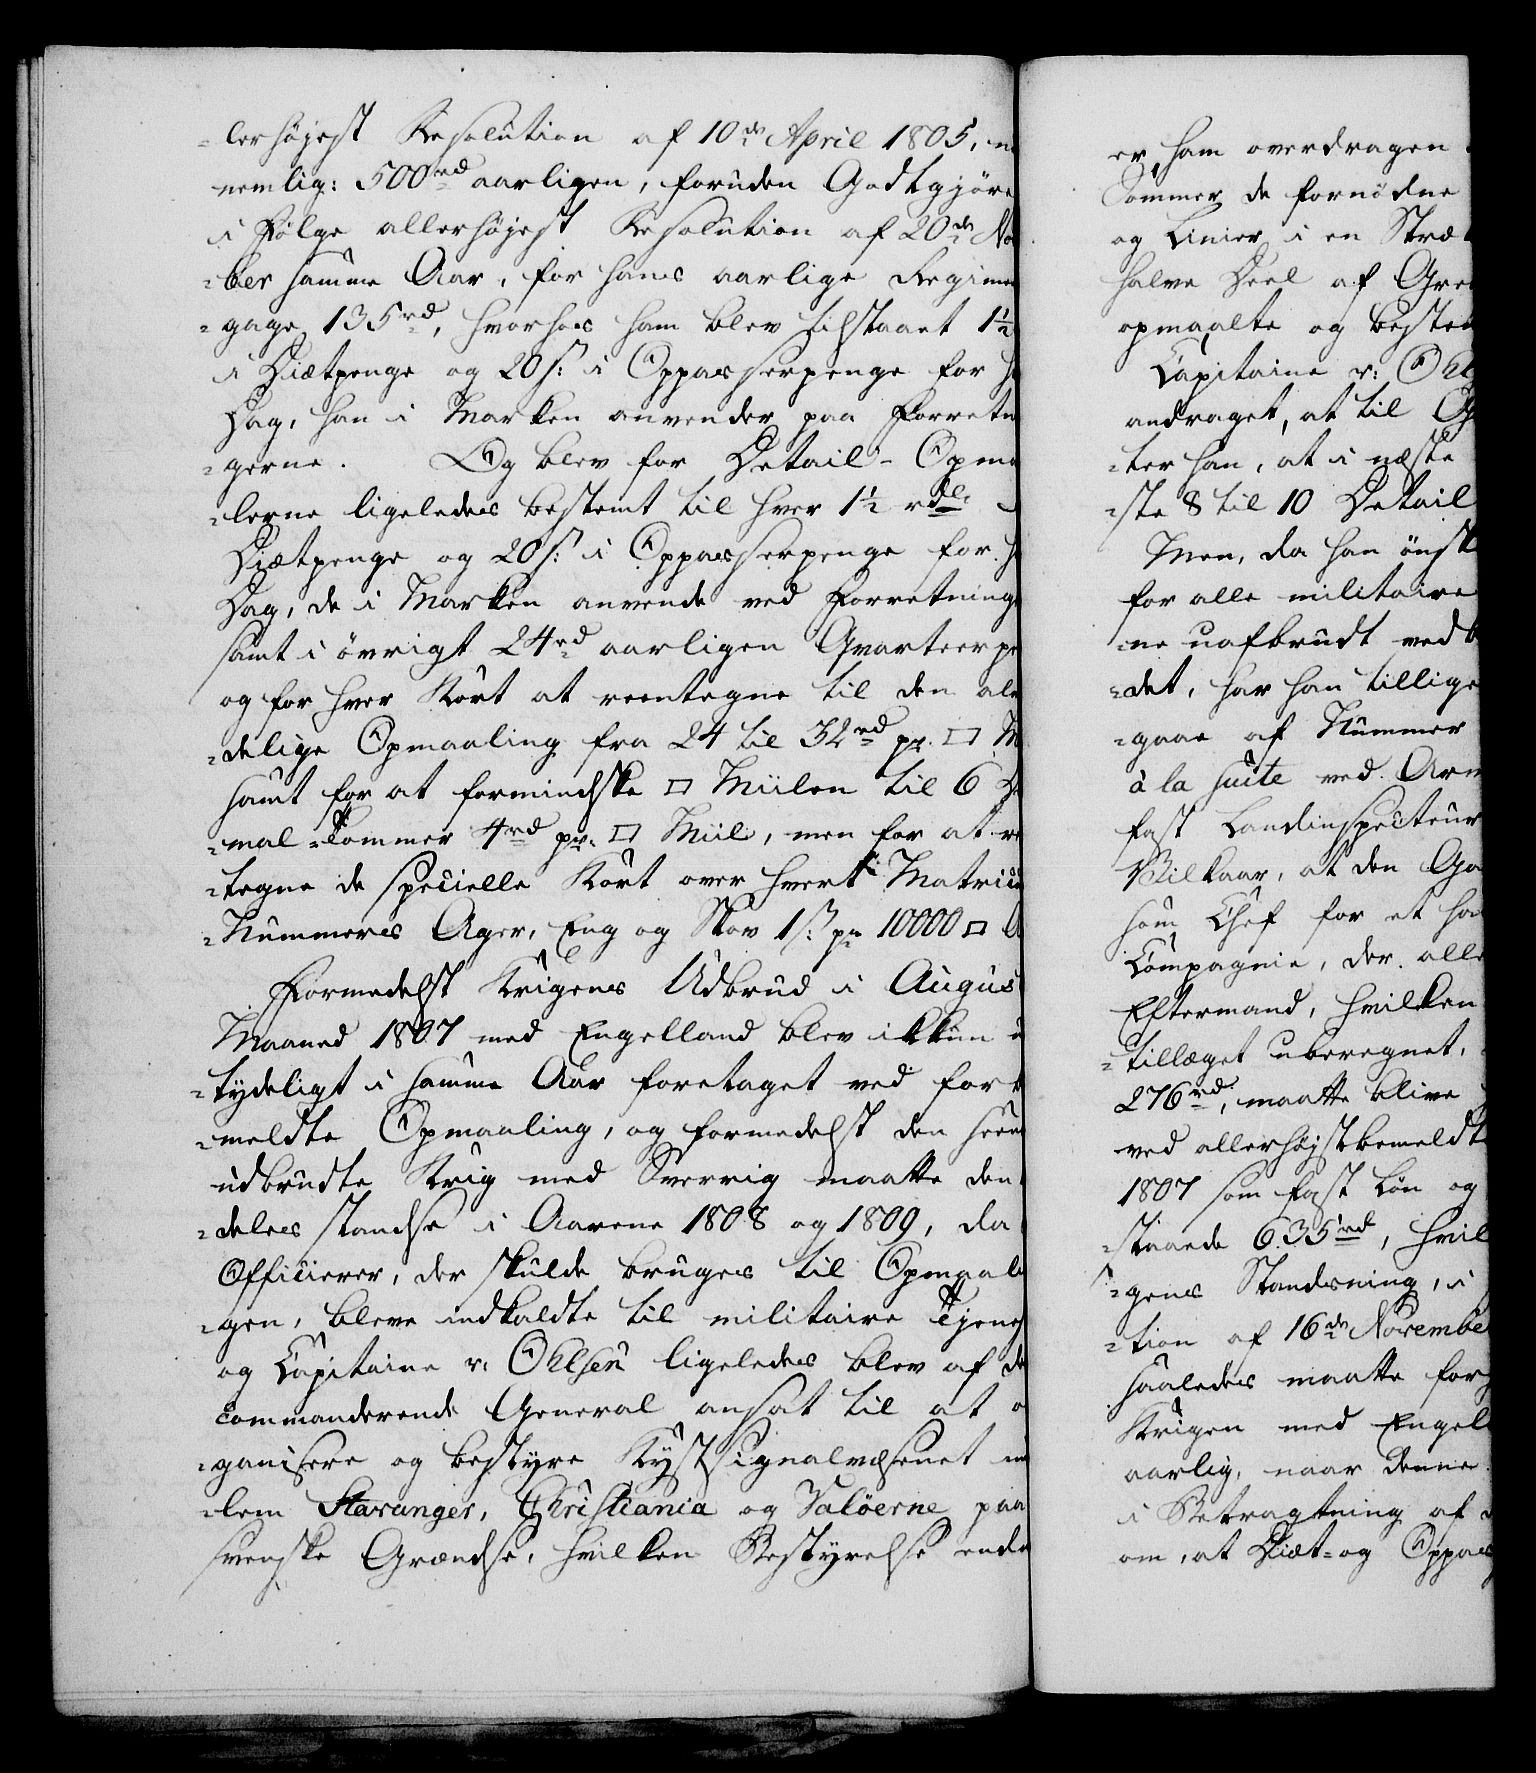 -lerhøjest Resolution af 10de April 1805,
nemlig: 500rd aarligen, foruden Godtgjöre
i Følge allerhøjest Resolution af 20de No
-ber samme Aar, for hans aarlige Regime
-gage 135rd, hvorhos ham blev tilstaaet 1½
i Diætpenge og 20 s: i Oppasserpenge for h
Dag, han i Marken anvender paa Forretn
-gerne. Og blev for Detail-Opma
-lerne ligeledes bestemt til hver 1½ rdlr
Diætpenge og 20 s: i Oppasserpenge for h
Dag, de i Marken anvende ved Forretning
samt i övrigt 24rd aarligen Qvarteerpe
og for hver Kort at reentegne til den al
-delige Opmaaling fra 24 til 32rd pr. □ M
samt for at formindske □ Miilen til 6 De
-mal-Tommer 4rd pr. □ Miil, men for at re
-tegne de specielle Kort over hvert Matricu
-Nummeres Ager, Eng og Skov 1 s: pr 10000 □ A
Formedelst Krigens Udbrud i Augus
Maaned 1807 med Engelland blev ikkun u
-tydeligt i samme Aar foretaget ved for
-meldte Opmaaling, og formedelst den
udbrudte Krig med Sverrig maatte den
-deles standse i Aarene 1808 og 1809, da
Officierer, der skulde bruges til Opmaal
-gen, bleve indkaldte til militaire Tjenes
og Capitaine v: Ohlsen ligeledes blev af de
commanderende General ansat til at o
-ganisere og bestyre Kystsignalvæsenet
-lem Stavanger, Christiania og Valöerne paa
svenske Grændse, hvilken Bestyrelse end
er ham overdragen
Sommer de fornödne
og Linier i en Stræ
halve Deel af Gre
opmaalte og beste
Capitaine v: Ohl
andraget, at til O
-ter han, at i næste
-ste 8 til 10 Detail
Men, da han önsk
for alle militaire
-ne uafbrudt vedb
-det, har han tillige
-gaae af Nummer
à la suite ved Arm
fast Landinspecteur
Vilkaar, at den Ga
som Chef for et ha
Compagnie, der alle
Eftermand, hvilken
-tillæget uberegnet,
276rd, maatte blive
ved allerhöjstbemeldt
1807 som fast Lön og
-staaende 635rd, hvil
-gens Standsning, i
-tion af 16de Novembe
saaledes maatte for
Krigen med Engel
aarlig, naar denne
i Betragtning af
om, at Diæt- og Oppas